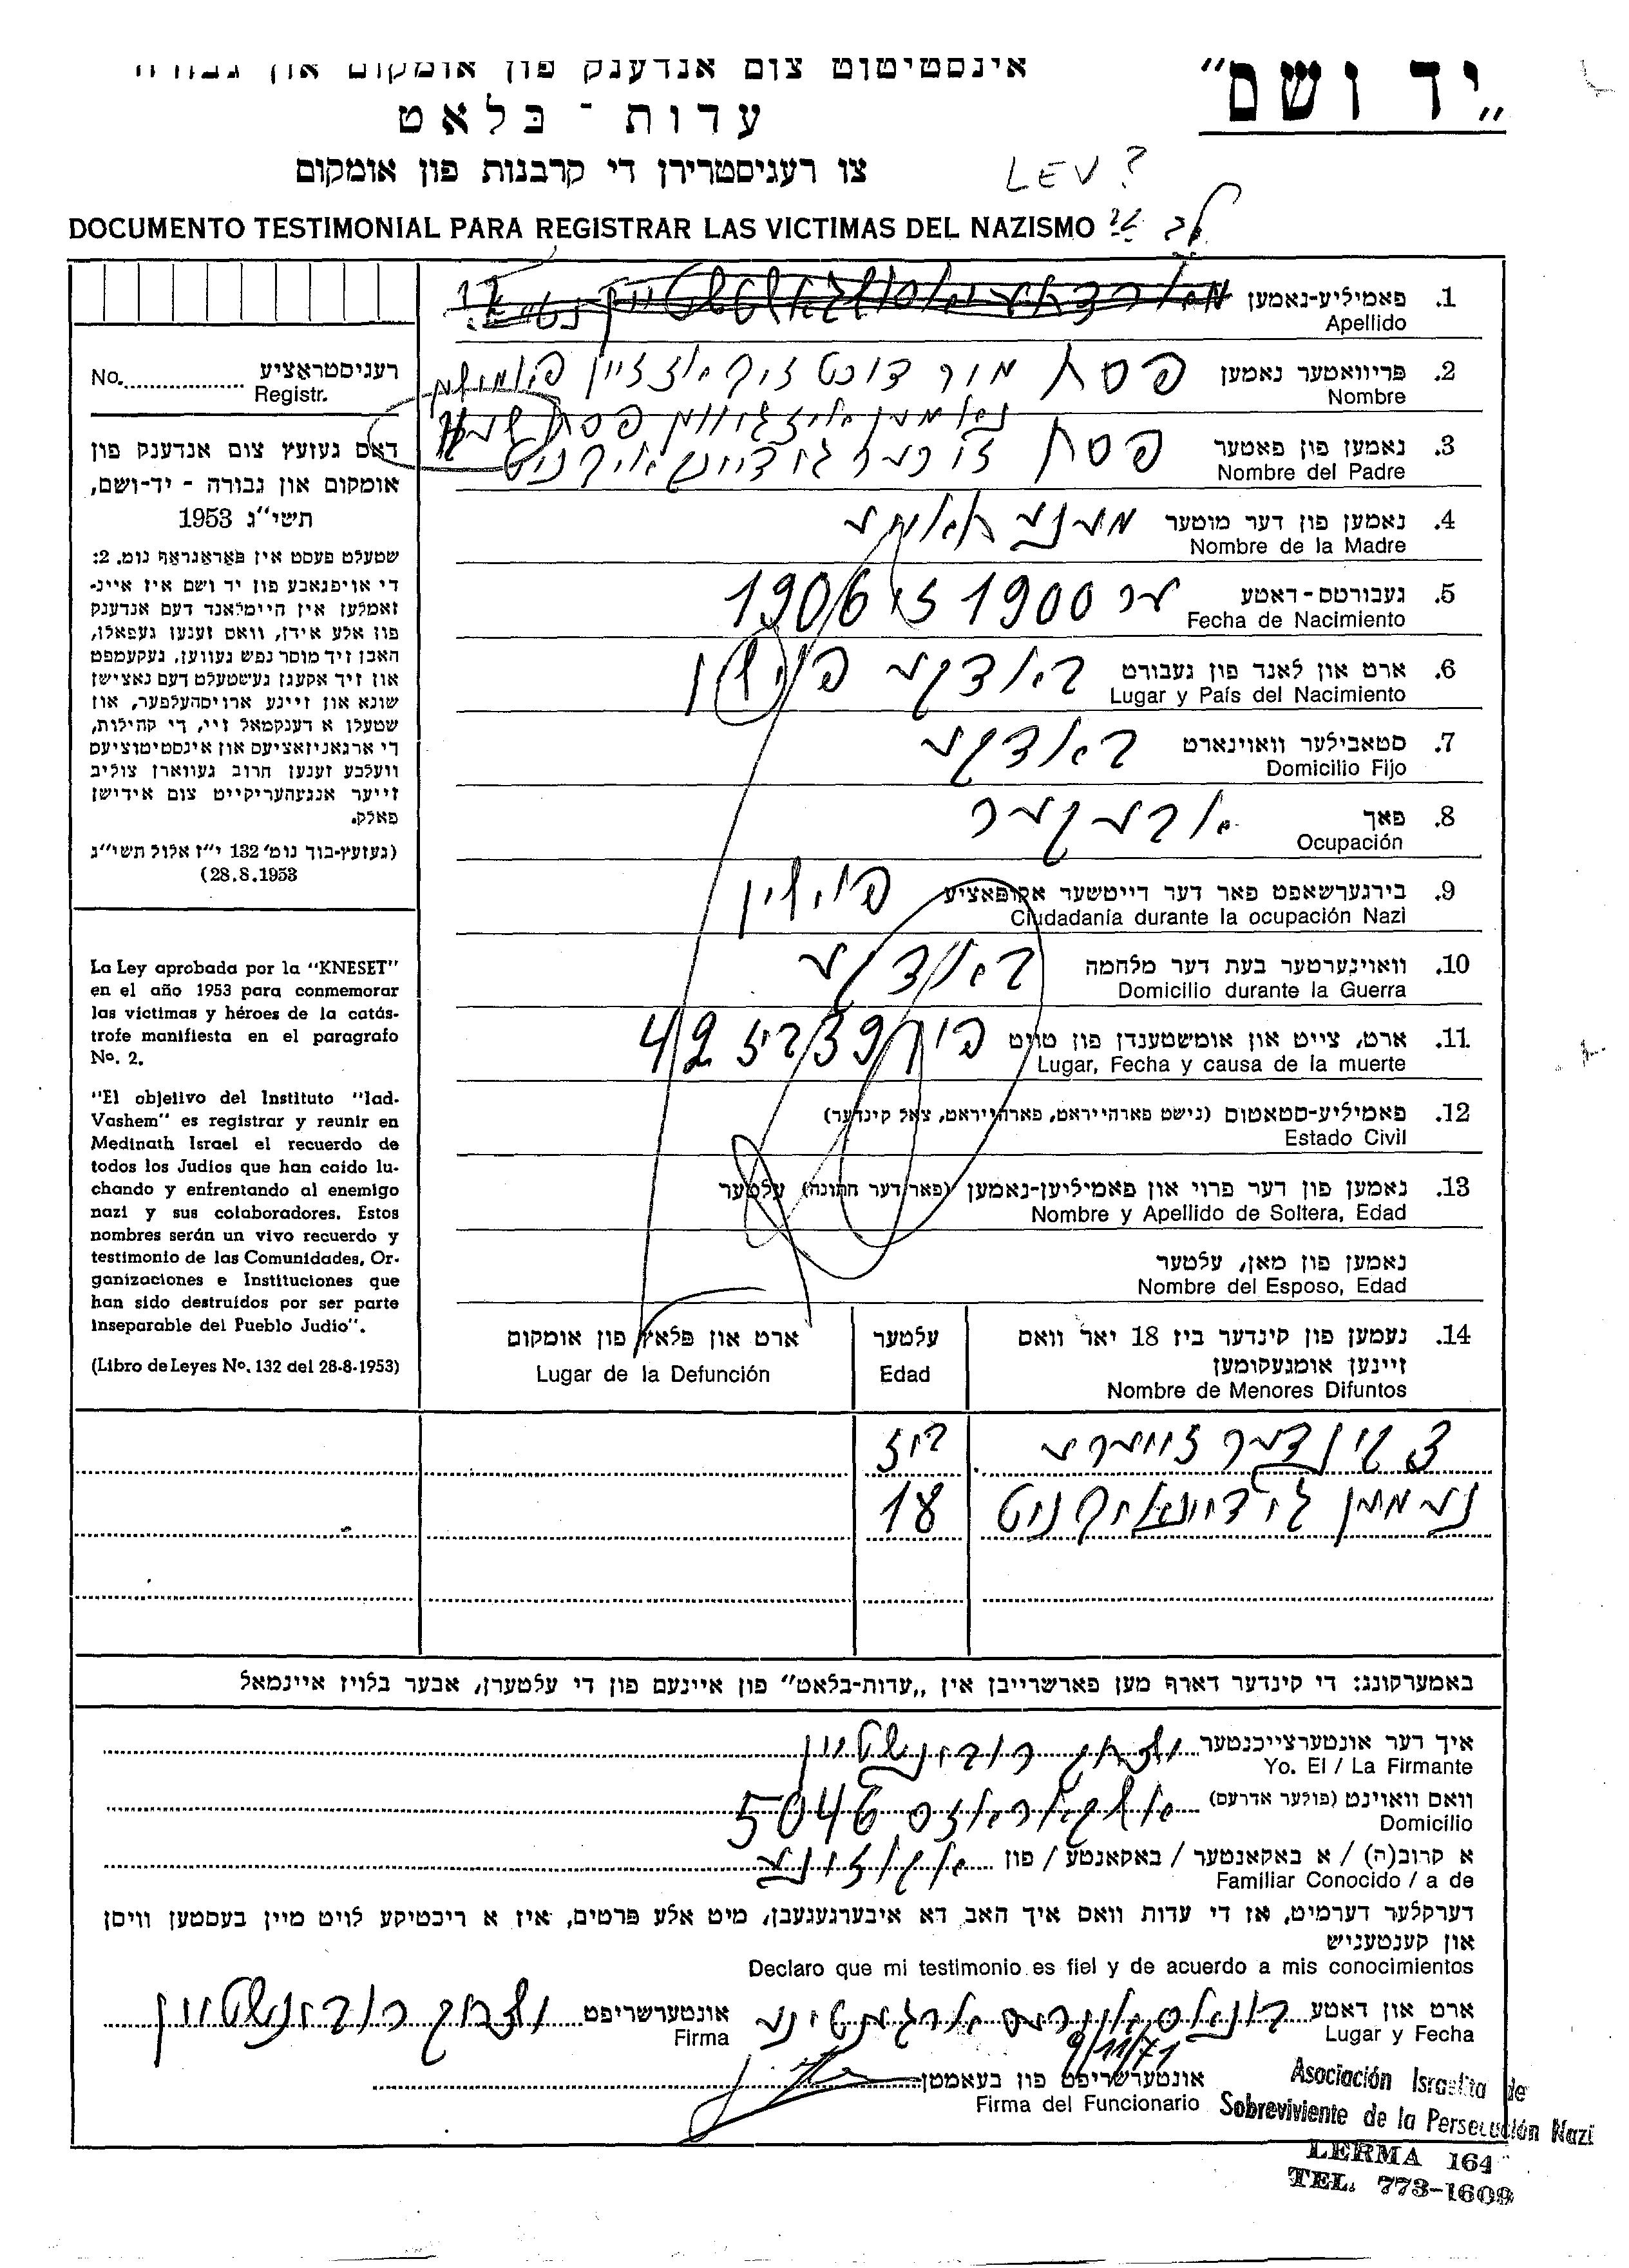 „יד ושם"
אינסטיטוט צום אנדענק פון אומקום און גבורה
עדות - בלאט
צו רעגיסטרירן די קרבנות פון אומקום
LEV?
DOCUMENTO TESTIMONIAL PARA REGISTRAR LAS VICTIMAS DEL NAZISMO
.1 פאמיליע-נאמען
Apellido
.2 פריוואטער נאמען פסח
Nombre
.3 נאמען פון פאטער פסח
Nombre del Padre
.4 נאמען פון דער מוטער
Nombre de la Madre
.5 געבורטס-דאטע 1900 1906
Fecha de Nacimiento
.6 ארט און לאנד פון געבורט באדקע פוילן
Lugar y País del Nacimiento
.7 סטאבילער וואוינארט באדקע
Domicilio Fijo
.8 פאך
Ocupación
.9 בירגערשאפט פאר דער דייטשער אקופאציע פוילין
Ciudadanía durante la ocupación Nazi
.10 וואוינערטער בעת דער מלחמה
Domicilio durante la Guerra
.11 ארט, צייט און אומשטענדן פון טויט 39 ביז 42
Lugar, Fecha y causa de la muerte
.12 פאמיליע-סטאטוס (נישט פארהייראט, פארהייראט, צאל קינדער)
Estado Civil
.13 נאמען פון דער פרוי און פאמיליען-נאמען (פאר דער חתונה) עלטער
Nombre y Apellido de Soltera, Edad
נאמען פון מאן, עלטער
Nombre del Esposo, Edad
.14 נעמען פון קינדער ביז 18 יאר וואס
זיינען אומגעקומען
Nombre de Menores Difuntos
עלטער
Edad
ארט און פלאץ פון אומקום
Lugar de la Defunción
ביז
נעמען 18
No. רעגיסטראציע
Registr.
דאס געזעץ צום אנדענק פון
אומקום און גבורה - יד-ושם,
תשי"ג 1953
שטעלט פעסט אין פאראגראף נומ. 2:
די אויפגאבע פון יד ושם איז איינ-
זאמלען אין היימלאנד דעם אנדענק
פון אלע אידן, וואס זענען געפאלן,
האבן זיך מוסר נפש געווען, געקעמפט
און זיך אקעגן געשטעלט דעם נאצישן
שונא און זיינע ארויסהעלפער, און
שטעלן א דענקמאל זיי, די קהילות,
די ארגאניזאציעס און אינסטיטוציעס
וועלכע זענען חרוב געווארן צוליב
זייער אנגעהעריקייט צום אידישן
פאלק.
(געזעץ-בוך נומ' 132 י"ז אלול תשי"ג
28.8.1953)
La Ley aprobada por la "KNESET"
en el año 1953 para conmemorar
las víctimas y héroes de la catás-
trofe manifiesta en el paragrafo
Nº. 2.
"El objetivo del Instituto "Iad-
Vashem" es registrar y reunir en
Medinath Israel el recuerdo de
todos los Judíos que han caído lu-
chando y enfrentando al enemigo
nazi y sus colaboradores. Estos
nombres serán un vivo recuerdo y
testimonio de las Comunidades, Or-
ganizaciones e Instituciones que
han sido destruídos por ser parte
inseparable del Pueblo Judío".
(Libro de Leyes Nº. 132 del 28-8-1953)
באמערקונג: די קינדער דארף מען פארשרייבן אין „עדות-בלאט" פון איינעם פון די עלטערן, אבער בלויז איינמאל
איך דער אונטערצייכנטער יצחק רובינשטיין
Yo. El / La Firmante
וואס וואוינט (פולער אדרעס) 5046
Domicilio
א קרוב(ה) / א באקאנטער / באקאנטע / פון
Familiar Conocido / a de
דערקלער דערמיט, אז די עדות וואס איך האב דא איבערגעגעבן, מיט אלע פרטים, איז א ריכטיקע לויט מיין בעסטען וויסן
און קענטעניש
Declaro que mi testimonio es fiel y de acuerdo a mis conocimientos
ארט און דאטע בונאס איירעס ארגענטינע אונטערשריפט יצחק רובינשטיין
Lugar y Fecha 9/11/71 Firma
אונטערשריפט פון בעאמטן
Firma del Funcionario
Asociación Israelita de
Sobreviviente de la Persecución Nazi
LERMA 164
TEL. 773-1609